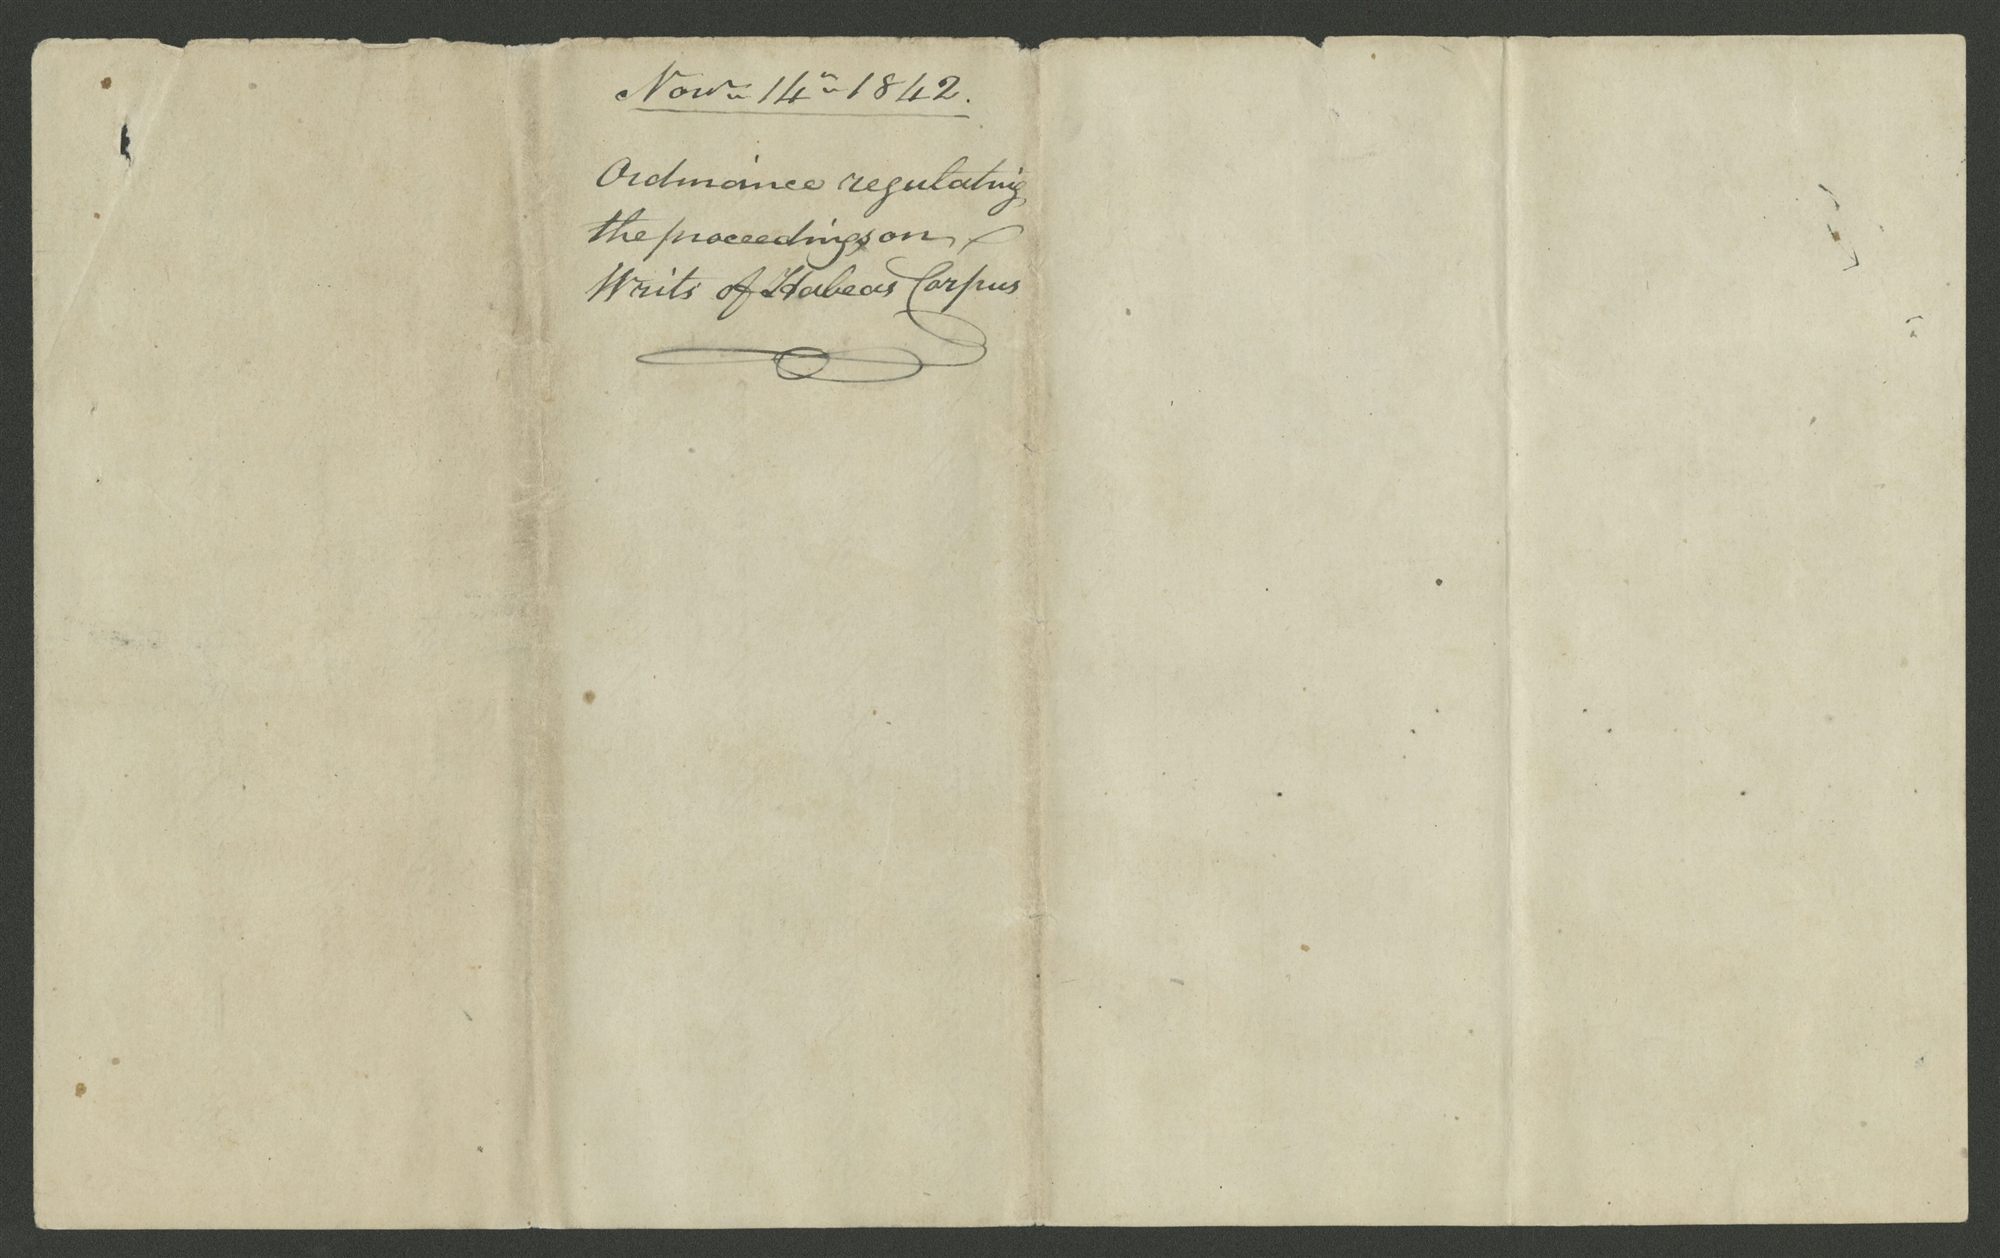 Novr 14th 1842.
Ordinance regulating
the proceedings on
Writs of Habeas Corpus